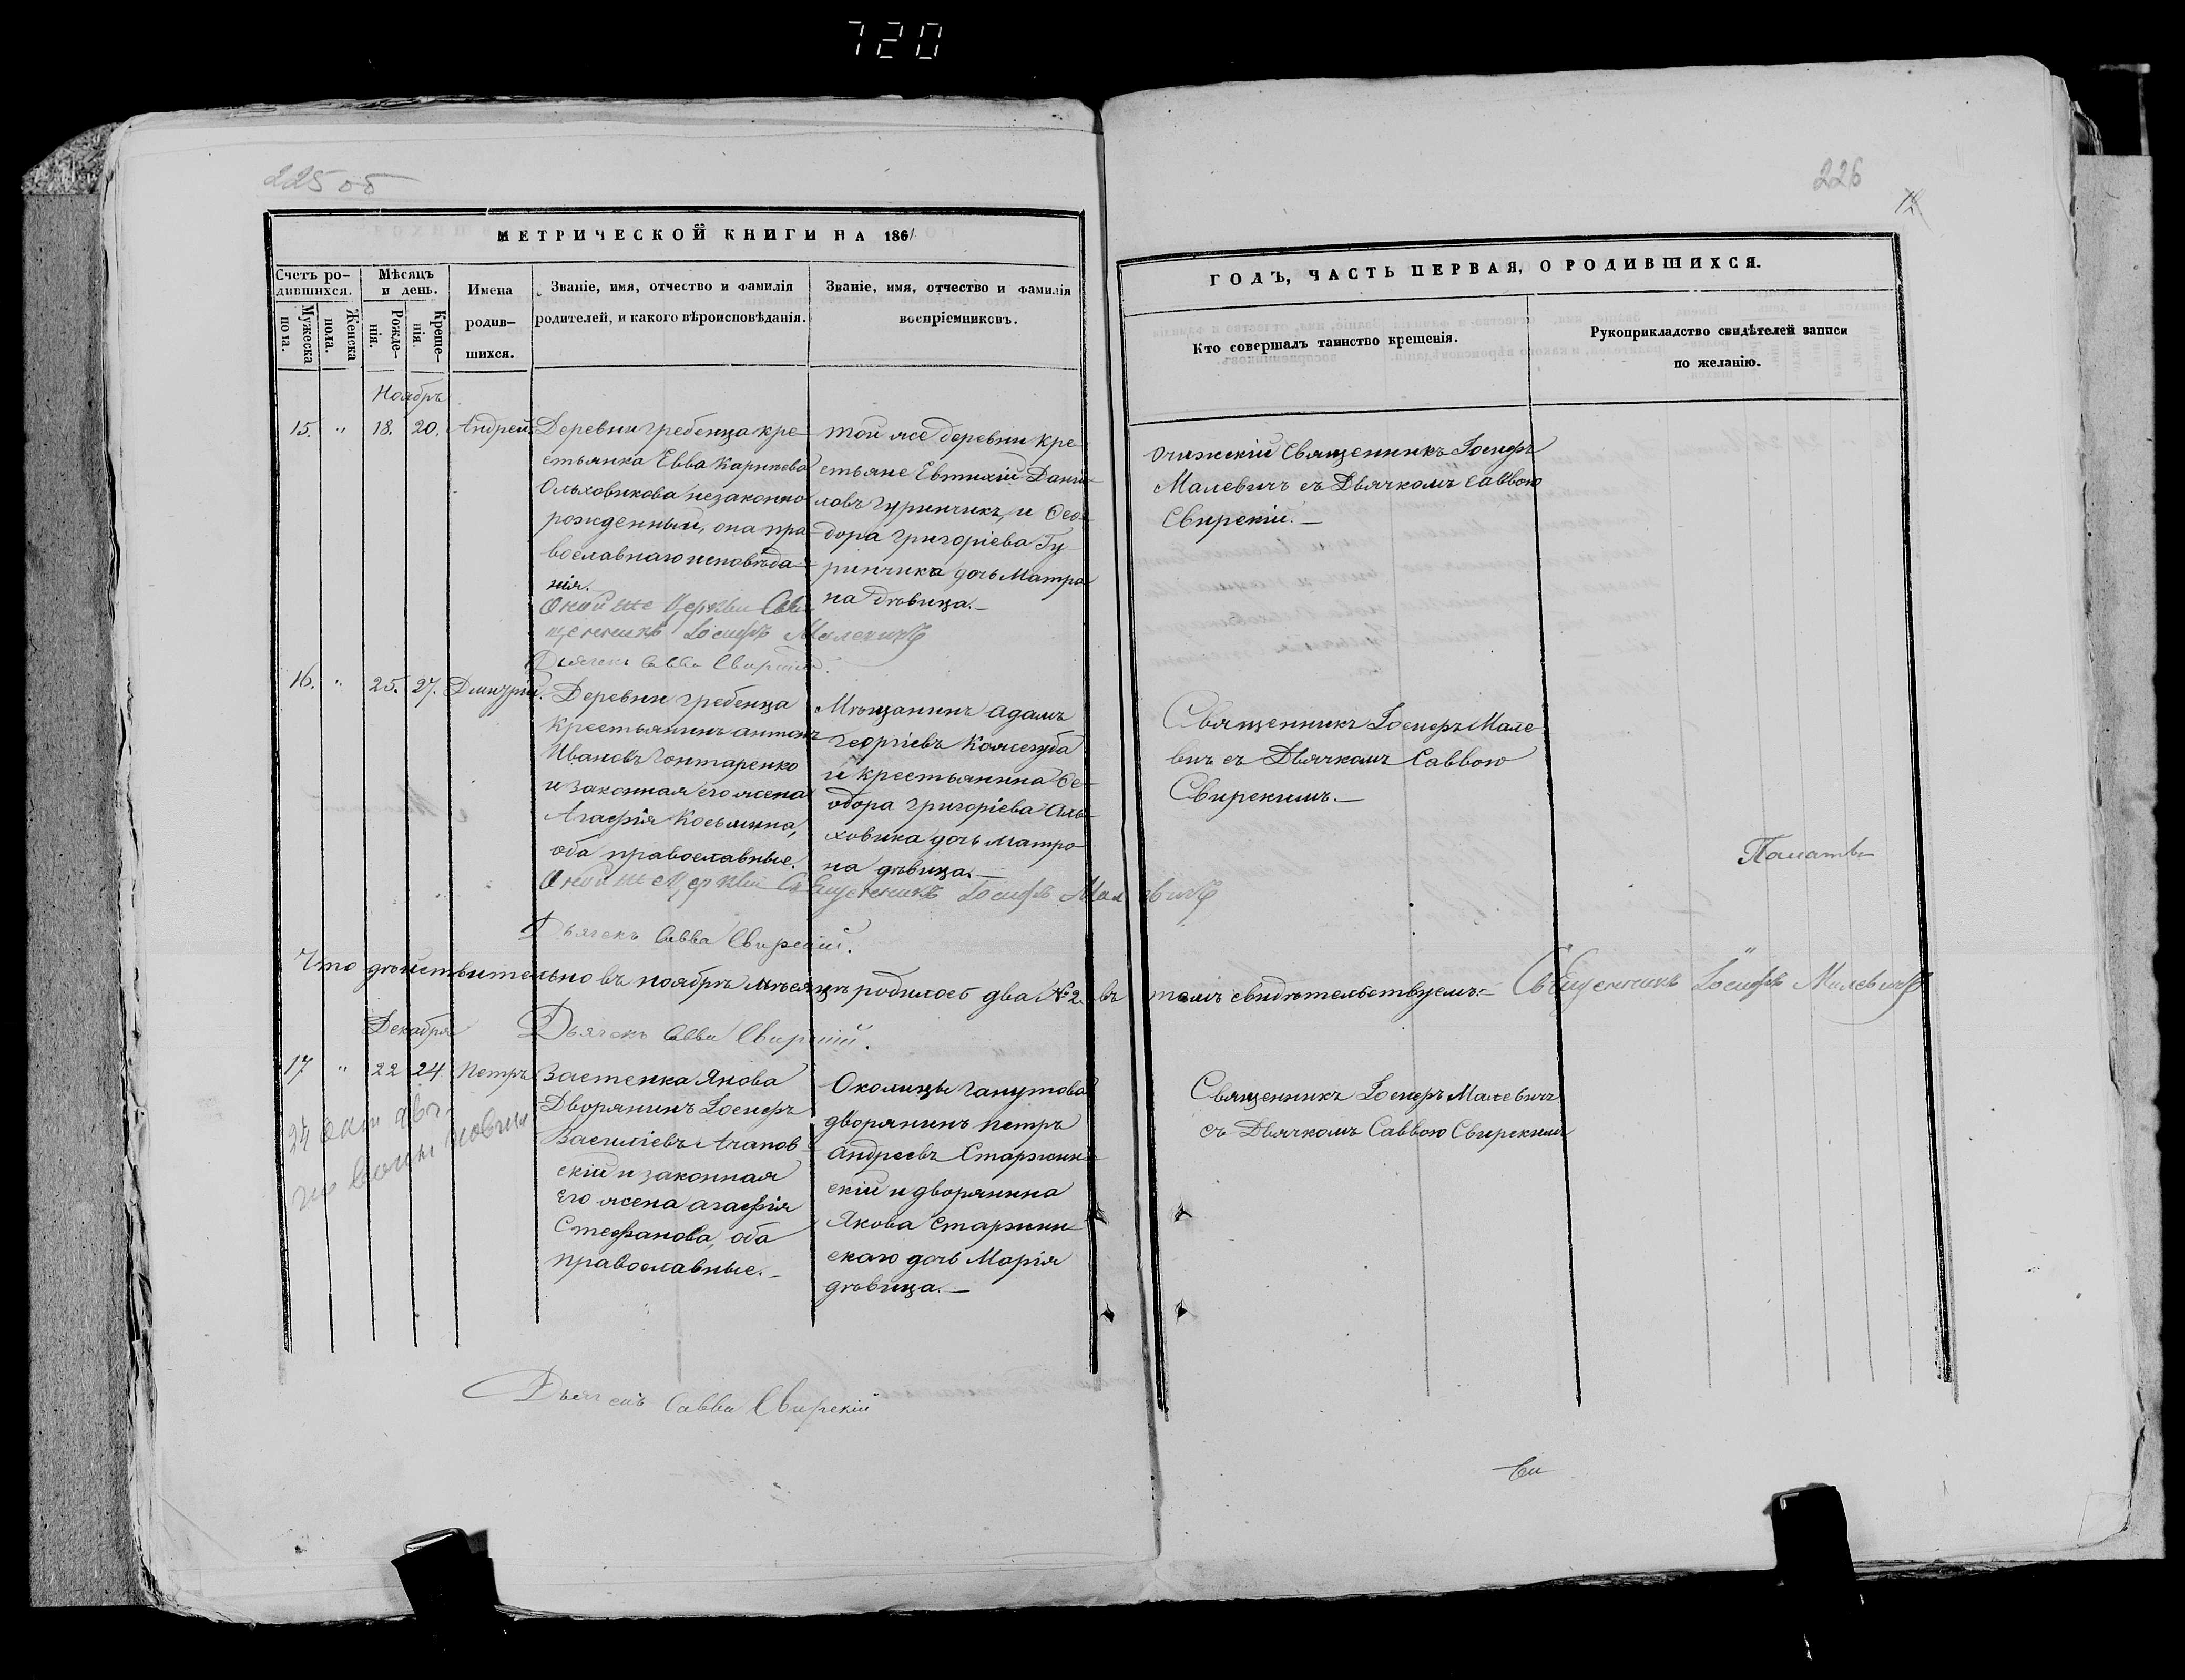 720
225 об
МЕТРИЧЕСКОЙ КНИГИ НА 1861
Счетъ ро-
дившихся.
Мужеска
пола.
Женска
пола.
Мѣсяцъ
и день.
Рожде-
нія.
Креще-
нія.
Имена
родив-
шихся.
Званіе, имя, отчество и фамилія
родителей, и какого вѣроисповѣданія.
Званіе, имя, отчество и фамилія
воспріемниковъ.
Ноябрь
15. " 18. 20. Андрей.
Деревни Гребенца кре-
стьянка Евва Карпиева
Ольховикова незаконно
рожденный, она пра-
вославнаго исповѣда-
нія.
Оной же Церкви Свя-
щенникъ Іосифъ Малевичъ
Дьячекъ Савва Свирскій.
Той же деревни кре-
стьяне Евтихій Дани-
ловъ Гуринчикъ, и Ѳео-
дора Григоріева Гу-
ринчика дочь Матро
на дѣвица.—
16. " 25. 27. Димитрій.
Деревни Гребенца
Крестьянинъ Антонъ
Ивановъ Гонтаренко
и законная его жена
Агафія Косьмина,
оба православные.
Оной же Церкви Священникъ Іосифъ Малевичъ
Дьячекъ Савва Свирскій.
Мѣщанинъ Адамъ
Георгіевъ Кожегуба
и крестьянина Ѳе-
одора Григоріева Оль-
ховика дочь Матро
на дѣвица.—
Что дѣйствительно въ ноябрѣ мѣсяцѣ родилось два № 2. въ томъ свидѣтельствуемъ:— Священникъ Іосифъ Малевичъ
Дьячекъ Савва Свирскій.
Декабря
17 " 22 24 Петръ
Застенка Янова
Дворянинъ Іосифъ
Василіевъ Агапов-
скій и законная
его жена Агафія
Стефанова, оба
православные.—
Околицы Гапутова
дворянинъ Петръ
Андреевъ Старжин-
скій и дворянина
Якова Старжин-
скаго дочь Марія
дѣвица.—
Дьячекъ Савва Свирскій
226
12
ГОДЪ, ЧАСТЬ ПЕРВАЯ, О РОДИВШИХСЯ.
Кто совершалъ таинство крещенія.
Рукоприкладство свидѣтелей записи
по желанію.
Священникъ Іосифъ
Малевичъ съ Дьячкомъ Саввою
Свирскій.—
Священникъ Іосифъ Мале-
вичъ съ Дьячкомъ Саввою
Свирскимъ.—
Священникъ Іосифъ Малевичъ
съ Дьячкомъ Саввою Свирскимъ